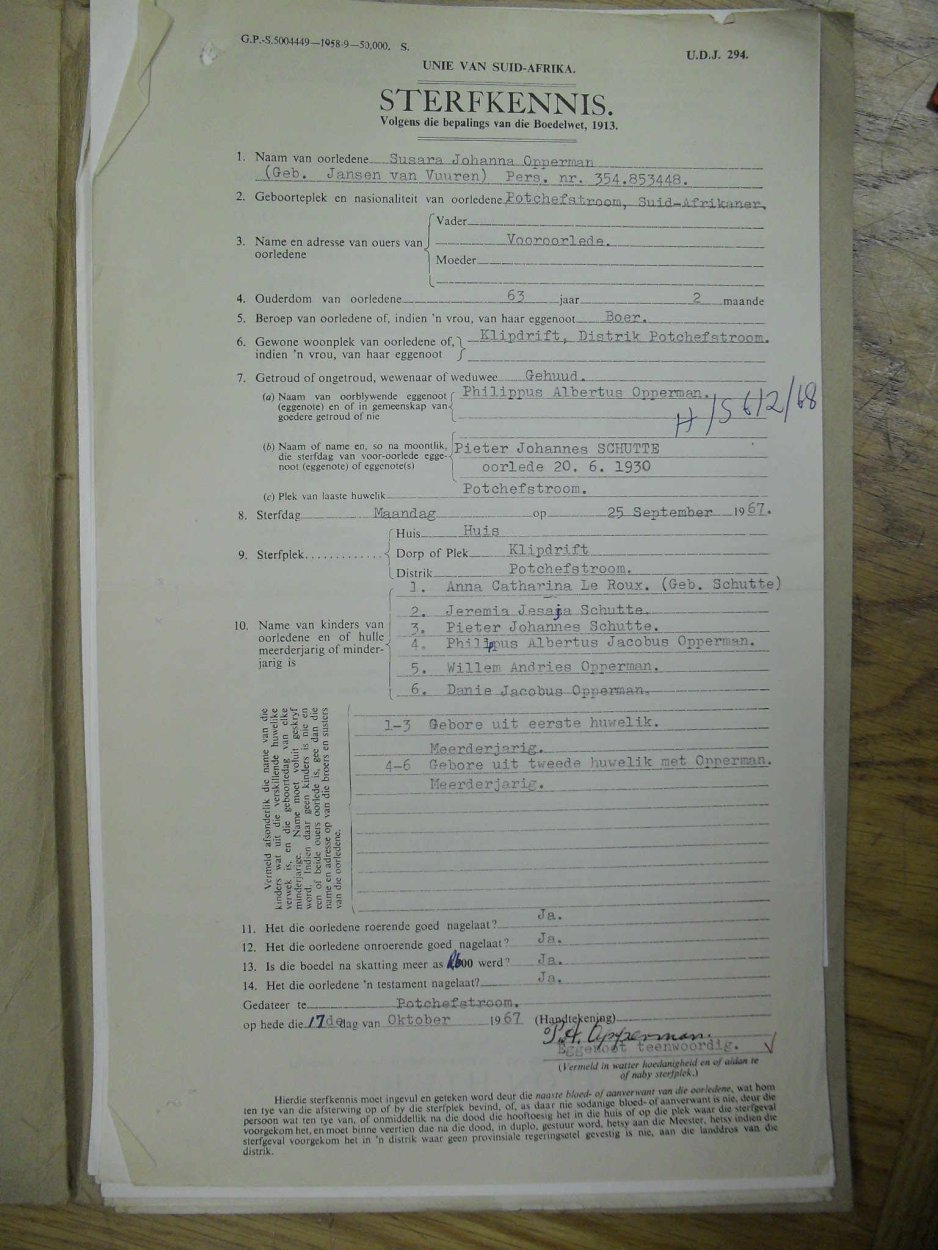 G.P.-S.5004449—1958-9—50,000. S.
U.D.J. 294.
UNIE VAN SUID-AFRIKA.
STERFKENNIS.
Volgens die bepalings van die Boedelwet, 1913.
1. Naam van oorledene Susara Johanna Opperman
(Geb. Jansen van Vuuren) Pers. nr. 354.853448.
2. Geboorteplek en nasionaliteit van oorledene Potchefstroom, Suid-Afrikaner.
3. Name en adresse van ouers van oorledene
Vader
Vooroorlede.
Moeder
4. Ouderdom van oorledene 63 jaar 2 maande
5. Beroep van oorledene of, indien 'n vrou, van haar eggenoot Boer.
6. Gewone woonplek van oorledene of, Klipdrift, Distrik Potchefstroom.
indien 'n vrou, van haar eggenoot
7. Getroud of ongetroud, wewenaar of weduwee Gehuud.
(a) Naam van oorblywende eggenoot Philippus Albertus Opperman.
(eggenote) en of in gemeenskap van
goedere getroud of nie
H/S 6/2/68
(b) Naam of name en, so na moontlik, Pieter Johannes SCHUTTE
die sterfdag van voor-oorlede egge-
noot (eggenote) of eggenote(s) oorlede 20. 6. 1930
(c) Plek van laaste huwelik Potchefstroom.
8. Sterfdag Maandag op 25 September 1967.
9. Sterfplek............
Huis Huis
Dorp of Plek Klipdrift
Distrik Potchefstroom.
10. Name van kinders van
oorledene en of hulle
meerderjarig of minder-
jarig is
1. Anna Catharina Le Roux. (Geb. Schutte)
2. Jeremia Jesaja Schutte.
3. Pieter Johannes Schutte.
4. Philippus Albertus Jacobus Opperman.
5. Willem Andries Opperman.
6. Danie Jacobus Opperman.
Vermeld afsonderlik die name van die
kinders wat uit die verskillende huwelike
verwek is, en die geboortedag van elke
minderjarige. Name moet voluit geskryf
word. Indien daar geen kinders is nie en
een of beide ouers oorlede is, gee dan die
name en adresse op van die broers en susters
van die oorledene.
1-3 Gebore uit eerste huwelik.
Meerderjarig.
4-6 Gebore uit tweede huwelik met Opperman.
Meerderjarig.
11. Het die oorledene roerende goed nagelaat? Ja.
12. Het die oorledene onroerende goed nagelaat? Ja.
13. Is die boedel na skatting meer as 00 werd? Ja.
14. Het die oorledene 'n testament nagelaat? Ja.
Gedateer te Potchefstroom.
op hede die 17de dag van Oktober 1967 (Handtekening)
P.A. Opperman.
Eggenoot teenwoordig.
(Vermeld in watter hoedanigheid en of aldan te
of naby sterfplek.)
Hierdie sterfkennis moet ingevul en geteken word deur die naaste bloed- of aanverwant van die oorledene, wat hom
ten tye van die afsterwing op of by die sterfplek bevind, of, as daar nie sodanige bloed- of aanverwant is nie, deur die
persoon wat ten tye van, of onmiddellik na die dood die hooftoesig het in die huis of op die plek waar die sterfgeval
voorgekom het, en moet binne veertien dae na die dood, in duplo, gestuur word, hetsy aan die Meester, hetsy indien die
sterfgeval voorgekom het in 'n distrik waar geen provinsiale regeringsetel gevestig is nie, aan die landdros van die
distrik.